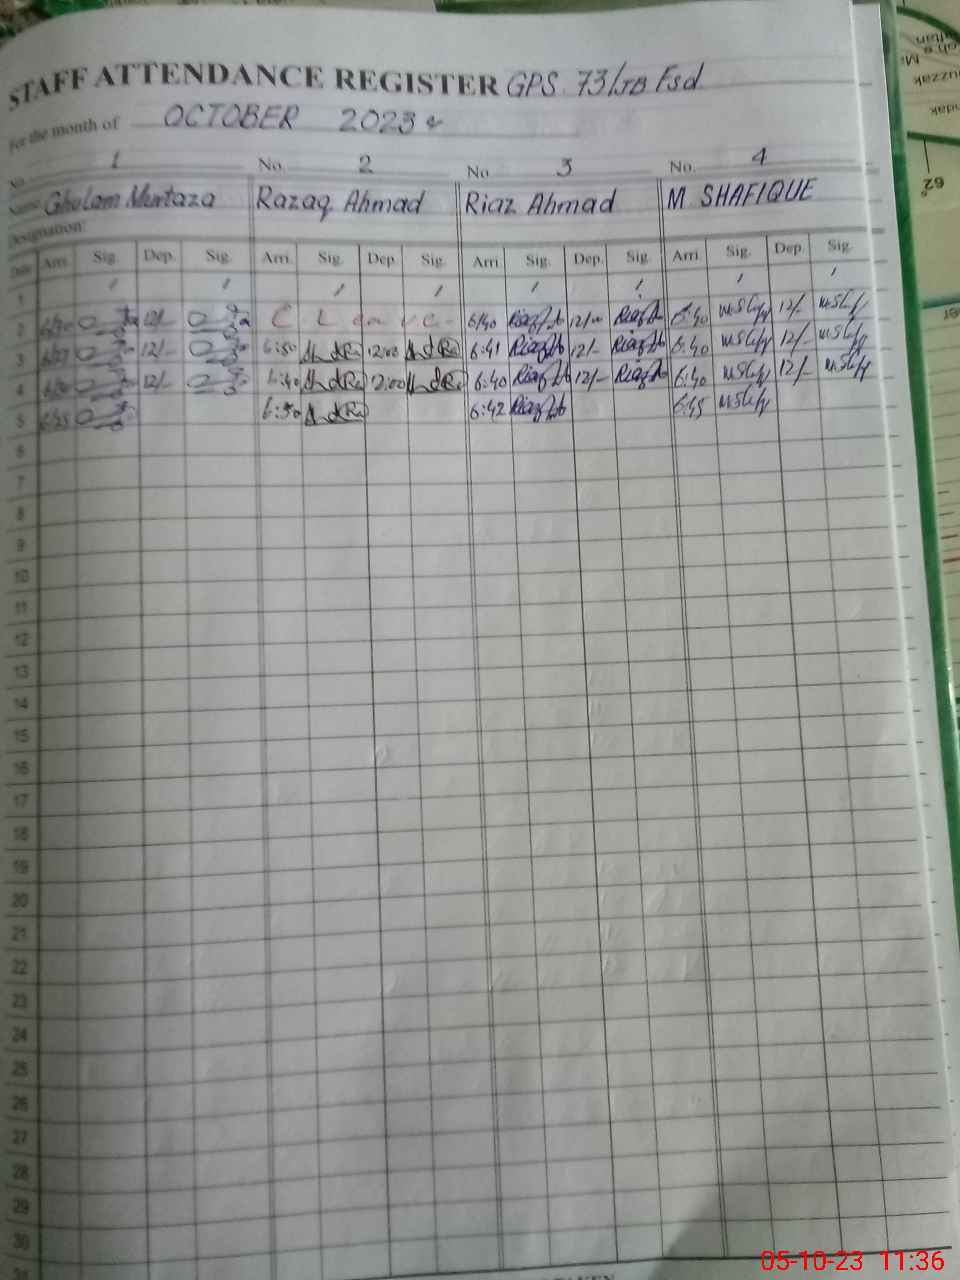 STAFF ATTENDANCE REGISTER GPS 73/JB Fsd
For the month of OCTOBER 2023
No. 1 No. 2 No. 3 No. 4
Name Ghulam Murtaza Razaq Ahmad Riaz Ahmad M SHAFIQUE
Designation:
Date Arri. Sig. Dep. Sig. Arri. Sig. Dep. Sig. Arri. Sig. Dep. Sig. Arri. Sig. Dep. Sig.
1
2 12/- C Leave 6/40 12/- 6:40 12/-
3 12/- 6:50 12:00 6:41 12/- 6:40 12/-
4 12/- 6:40 12:00 6:40 12/- 6:40 12/-
5 6:50 6:42 6:45
6
7
8
9
10
11
12
13
14
15
16
17
18
19
20
21
22
23
24
25
26
27
28
29
30
05-10-23 11:36